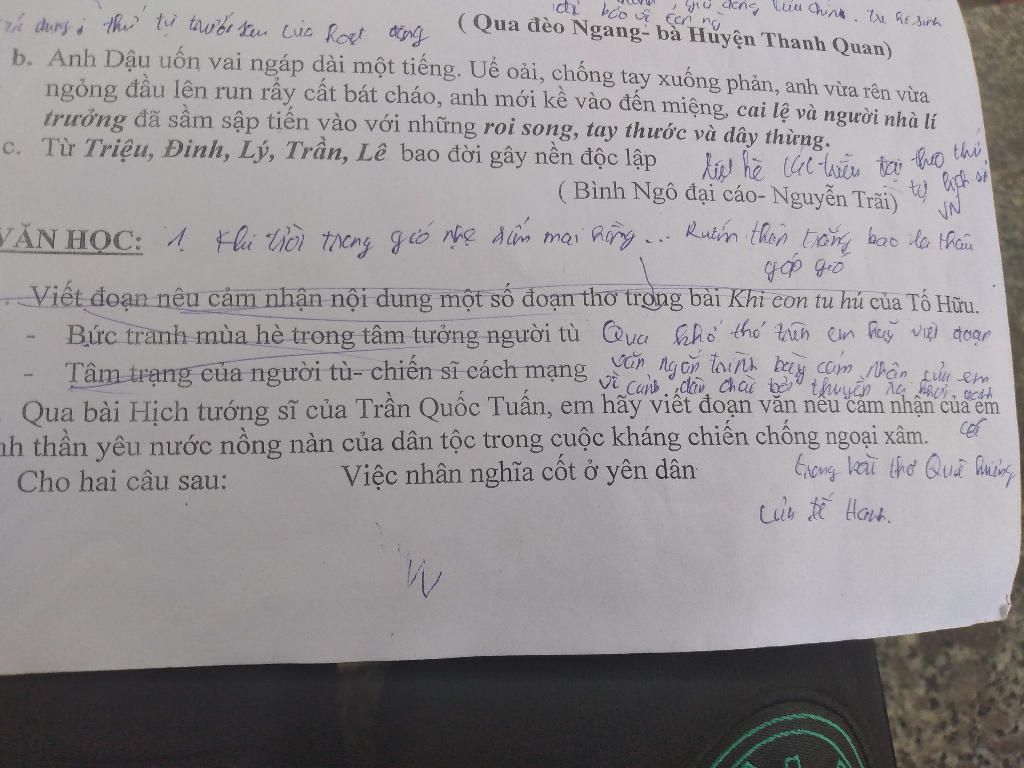 bảo vệ con ng
thứ tự trước sau của hoạt động
( Qua đèo Ngang- bà Huyện Thanh Quan)
b. Anh Dậu uốn vai ngáp dài một tiếng. Uể oải, chống tay xuống phản, anh vừa rên vừa
ngỏng đầu lên run rẩy cất bát cháo, anh mới kề vào đến miệng, cai lệ và người nhà lí
trưởng đã sầm sập tiến vào với những roi song, tay thước và dây thừng.
c. Từ Triệu, Đinh, Lý, Trần, Lê bao đời gây nền độc lập
các triều đại theo thứ
tự lịch sử
VN
( Bình Ngô đại cáo- Nguyễn Trãi)
VĂN HỌC: 1. Khi trời trong gió nhẹ sớm mai hồng ... Rướn thân trắng bao la thâu
góp gió
Viết đoạn nêu cảm nhận nội dung một số đoạn thơ trong bài Khi con tu hú của Tố Hữu.
- Bức tranh mùa hè trong tâm tưởng người tù
Qua khổ thơ trên em hãy viết đoạn
- Tâm trạng của người tù- chiến sĩ cách mạng
văn ngắn trình bày cảm nhận của em
về cảnh dân chài bơi thuyền ra khơi đánh
cá
Qua bài Hịch tướng sĩ của Trần Quốc Tuấn, em hãy viết đoạn văn nêu cảm nhận của em
nh thần yêu nước nồng nàn của dân tộc trong cuộc kháng chiến chống ngoại xâm.
trong bài thơ Quê hương
của Tế Hanh.
Cho hai câu sau: Việc nhân nghĩa cốt ở yên dân